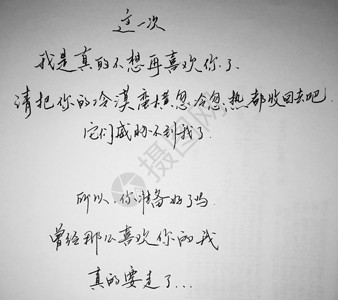 这一次
我是真的不想再喜欢你了.
请把你的冷漠蛮横忽冷忽热都收回去吧.
它们威胁不到我了.
所以.你准备好了吗.
曾经那么喜欢你的我
真的要走了...